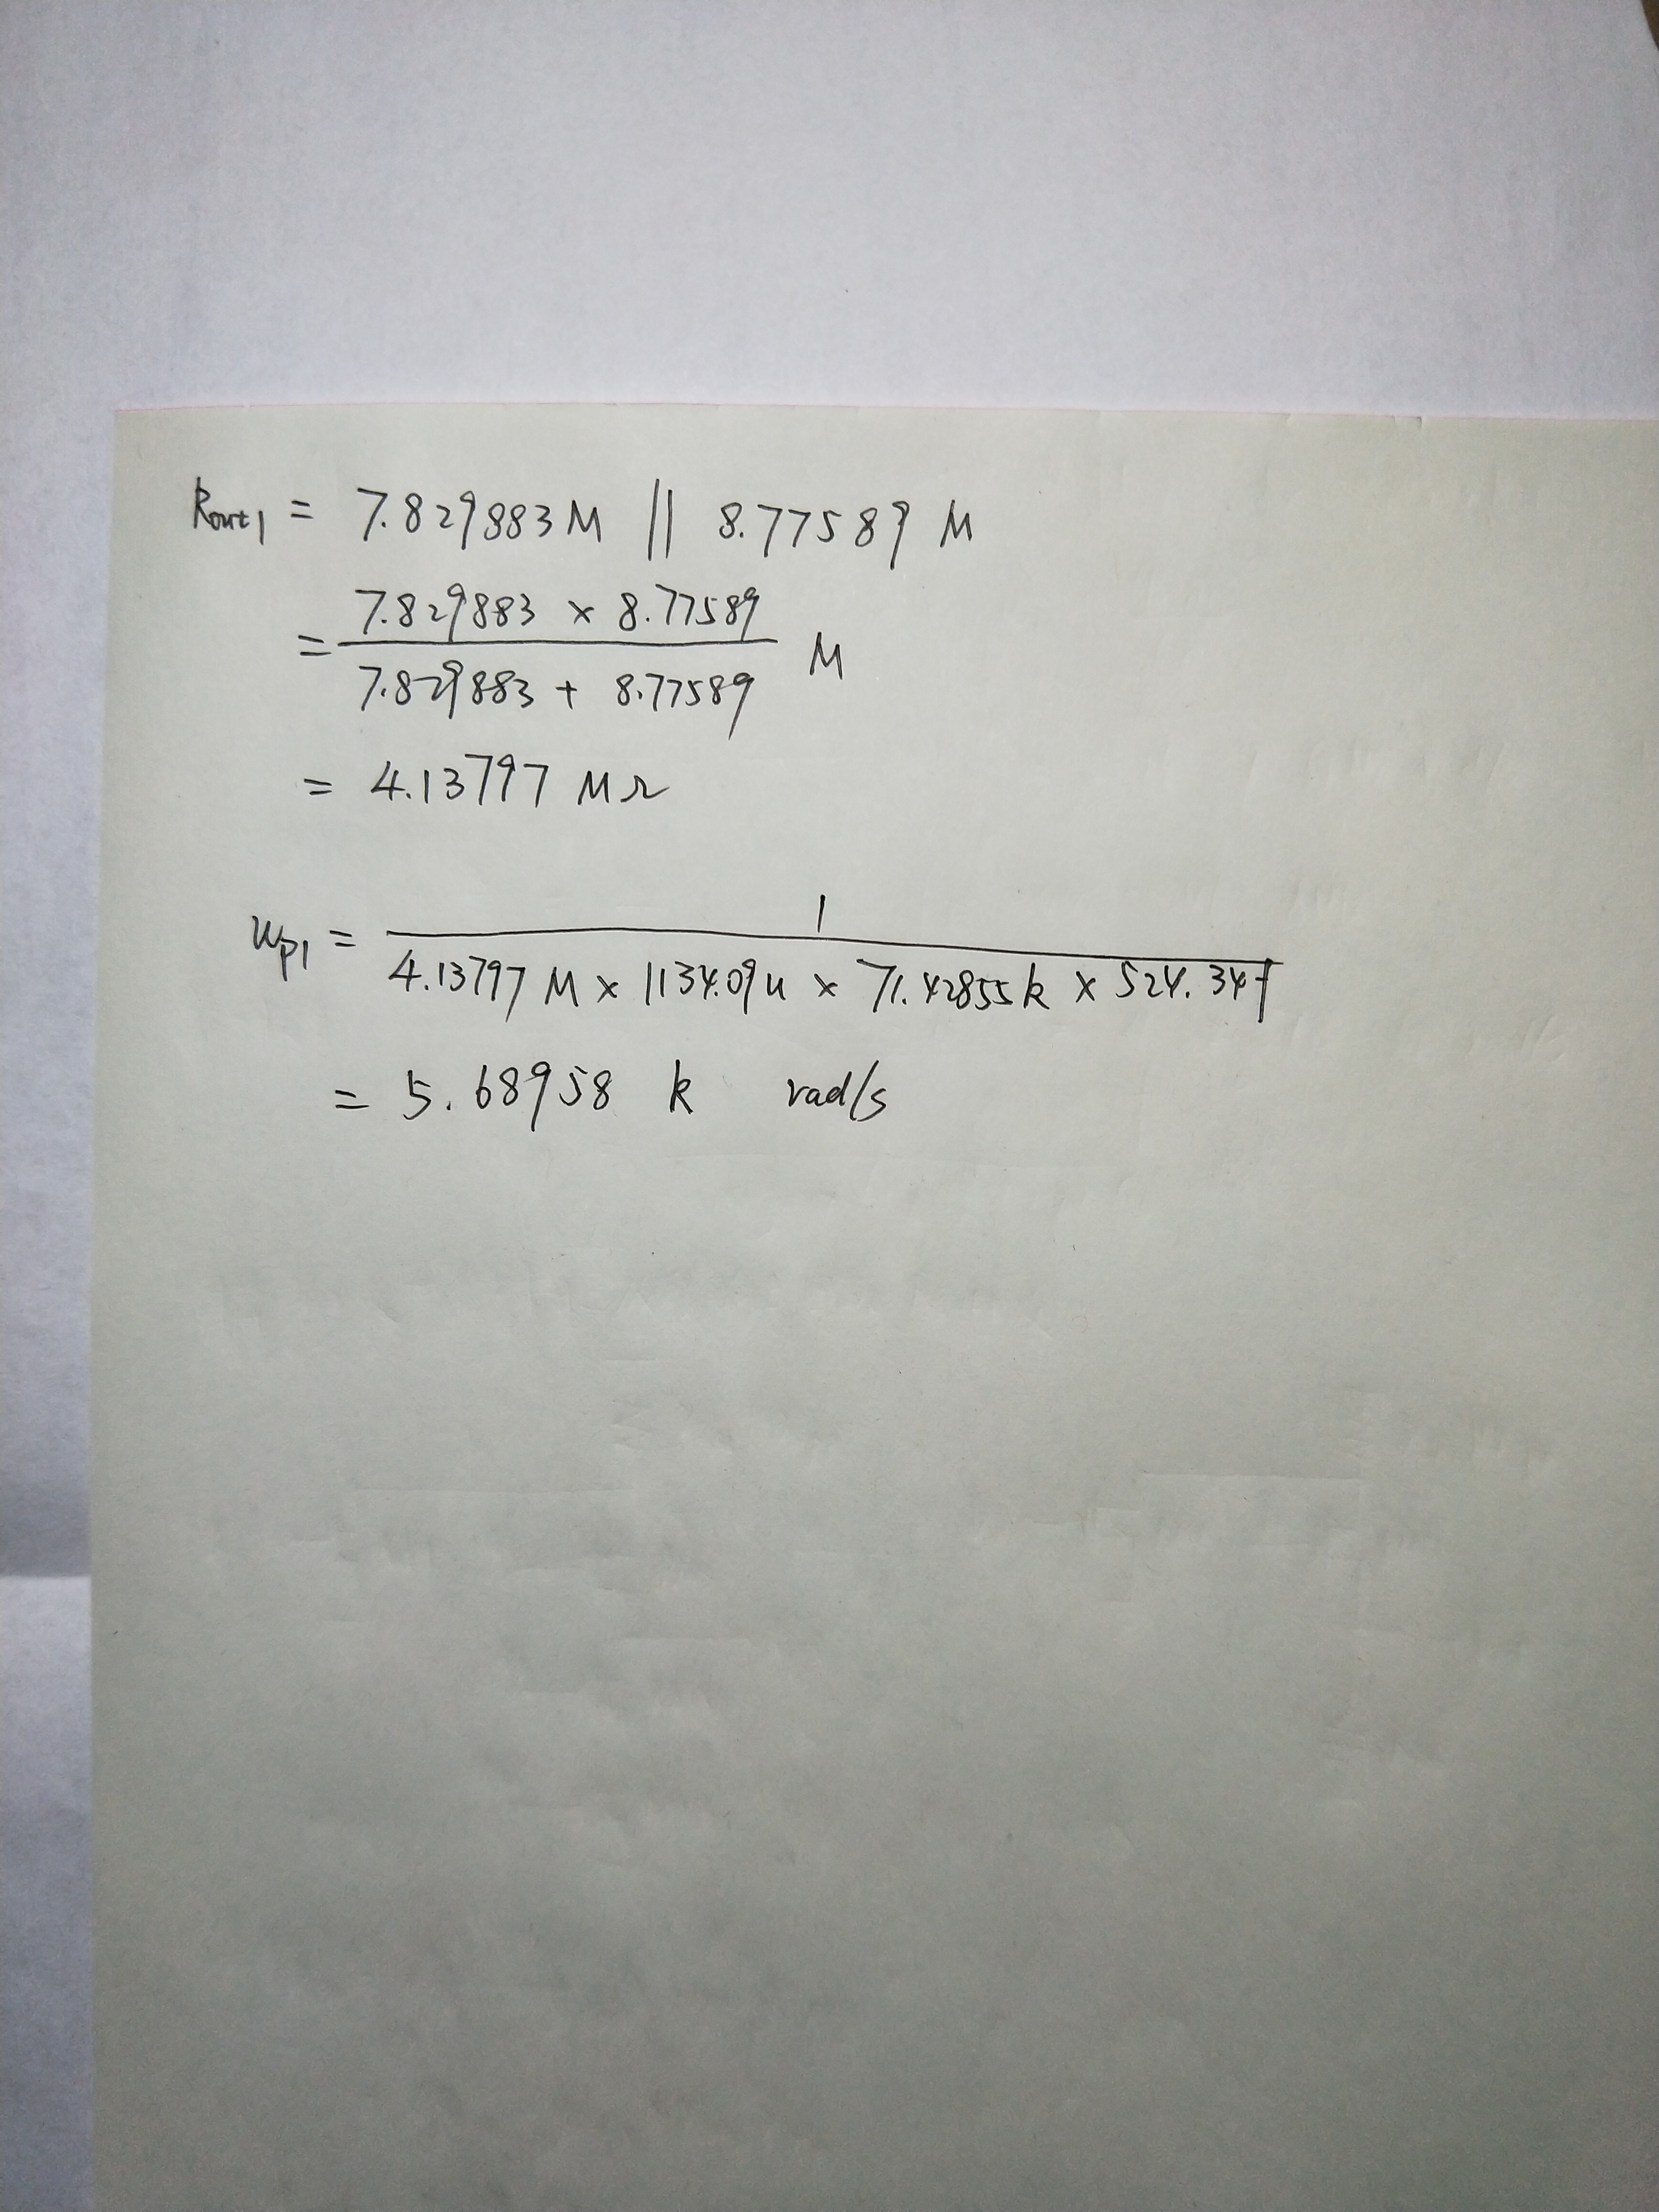 Rout1 = 7.829883 M || 8.77589 M
= 7.829883 × 8.77589 / 7.829883 + 8.77589 M
= 4.13797 MΩ
wp1 = 1 / 4.13797 M × 1134.09u × 71.42855k × 524.34f
= 5.68958 k rad/s